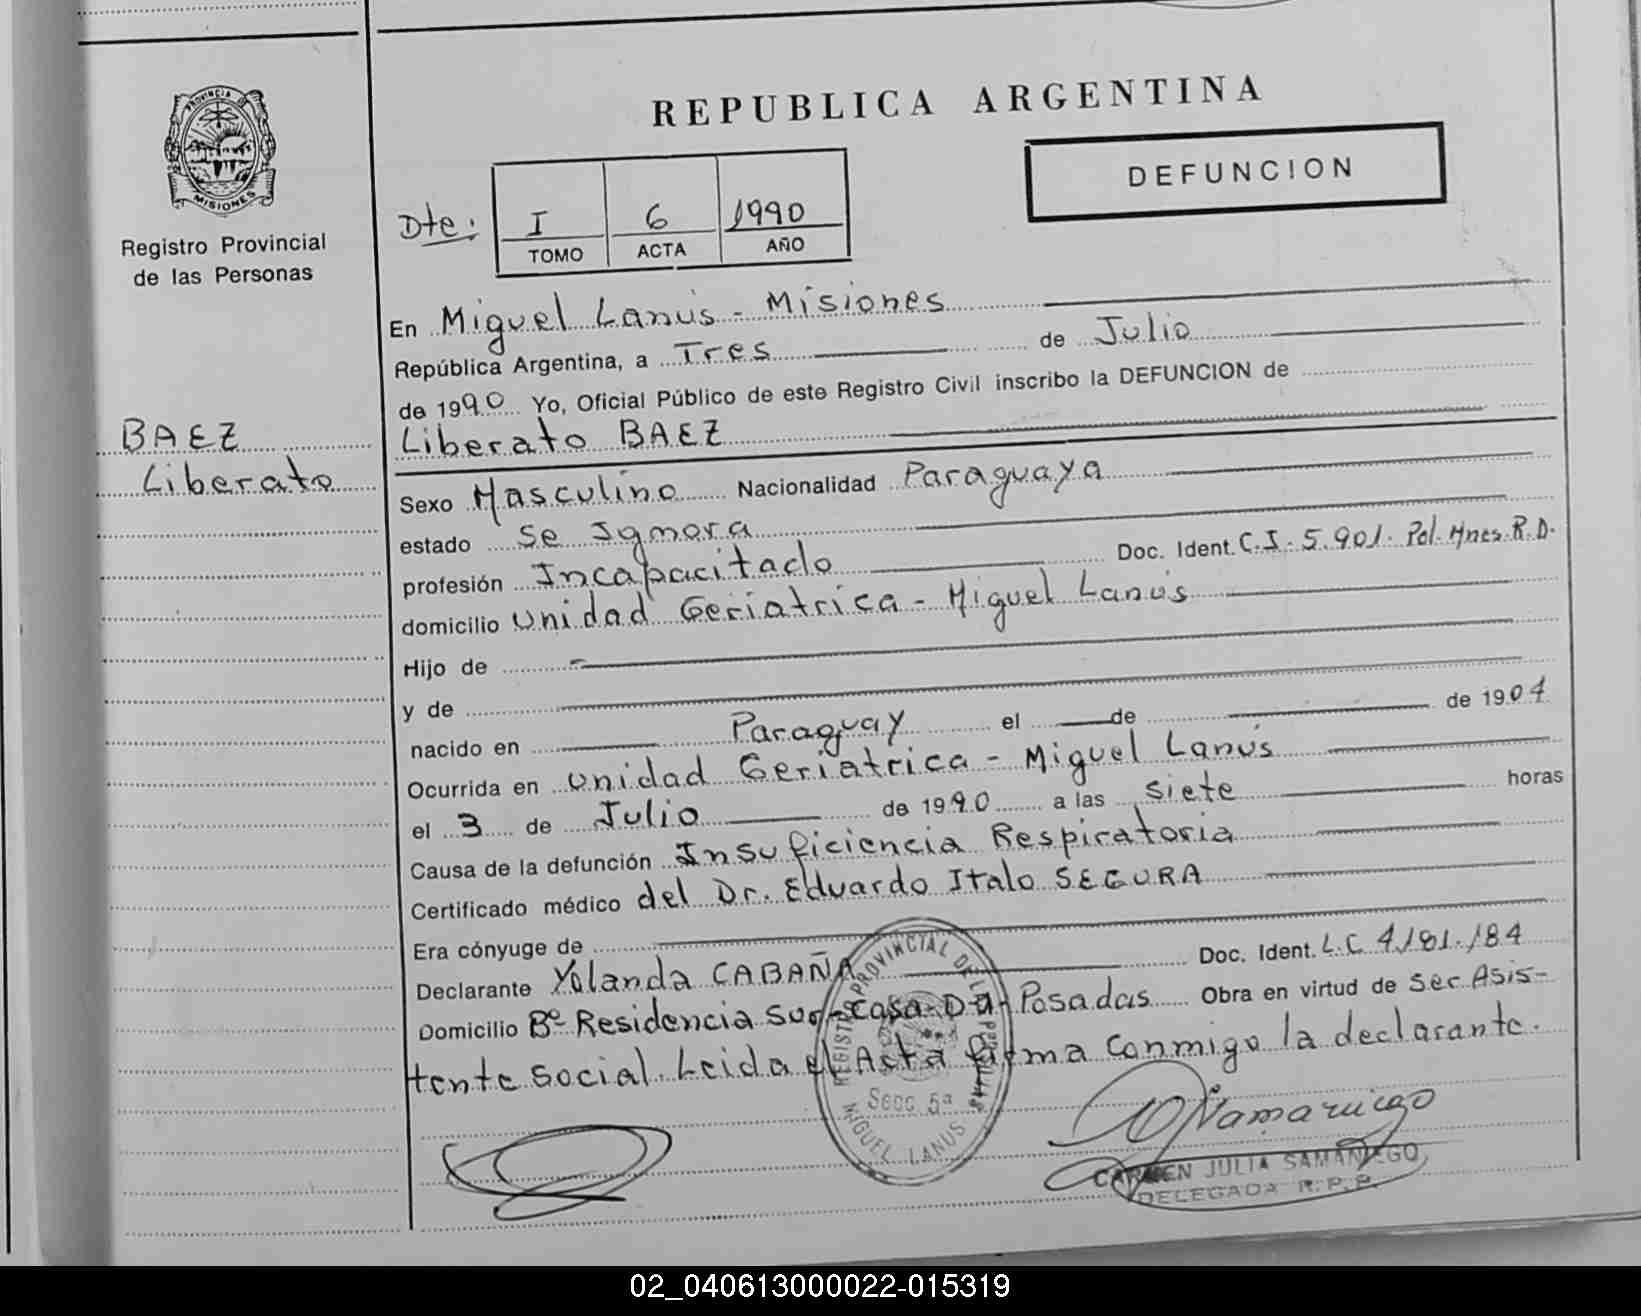 REPUBLICA ARGENTINA
DEFUNCION
PROVINCIA DE
MISIONES
Registro Provincial
de las Personas
Dte: I 6 1990
TOMO ACTA AÑO
BAEZ
Liberato
En Miguel Lanús - Misiones
República Argentina, a Tres de Julio
de 1990 Yo, Oficial Público de este Registro Civil inscribo la DEFUNCION de
Liberato BAEZ
Sexo Masculino Nacionalidad Paraguaya
estado Se Ignora
profesión Incapacitado Doc. Ident. C.I. 5.901. Pol. Mnes. R.D.
domicilio Unidad Geriatrica - Miguel Lanús
Hijo de
y de
nacido en Paraguay el de de 1904
Ocurrida en Unidad Geriatrica - Miguel Lanús
el 3 de Julio de 1990 a las Siete horas
Causa de la defunción Insuficiencia Respiratoria
Certificado médico del Dr. Eduardo Italo SEGURA
Era cónyuge de
Declarante Yolanda CABAÑA Doc. Ident. L.C 4/81./84
Domicilio Bº Residencia Sur - Casa - Posadas Obra en virtud de Ser Asis-
tente Social. Leida el Acta firma conmigo la declarante.
REGISTRO PROVINCIAL DE LAS PERSONAS
Secc. 5ª
MIGUEL LANUS
CARMEN JULIA SAMANIEGO
DELEGADA R.P.P.
02_040613000022-015319